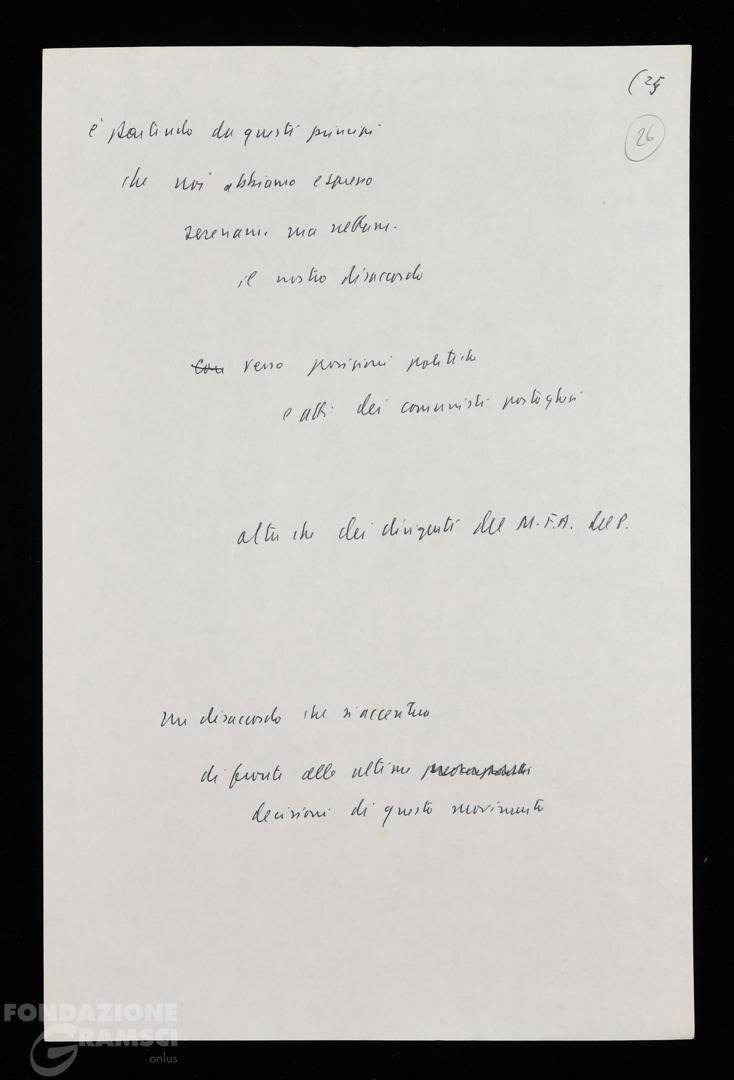 (25
26
è partendo da questi principi
che noi abbiamo espresso
serenam. ma nettam.
il nostro disaccordo
Con verso posizioni politiche
e atti dei comunisti portoghesi
altre che dei dirigenti del M.F.A. del P.
un disaccordo che si accentua
di fronte alle ultime
decisioni di questo movimento
FONDAZIONE
GRAMSCI
onlus